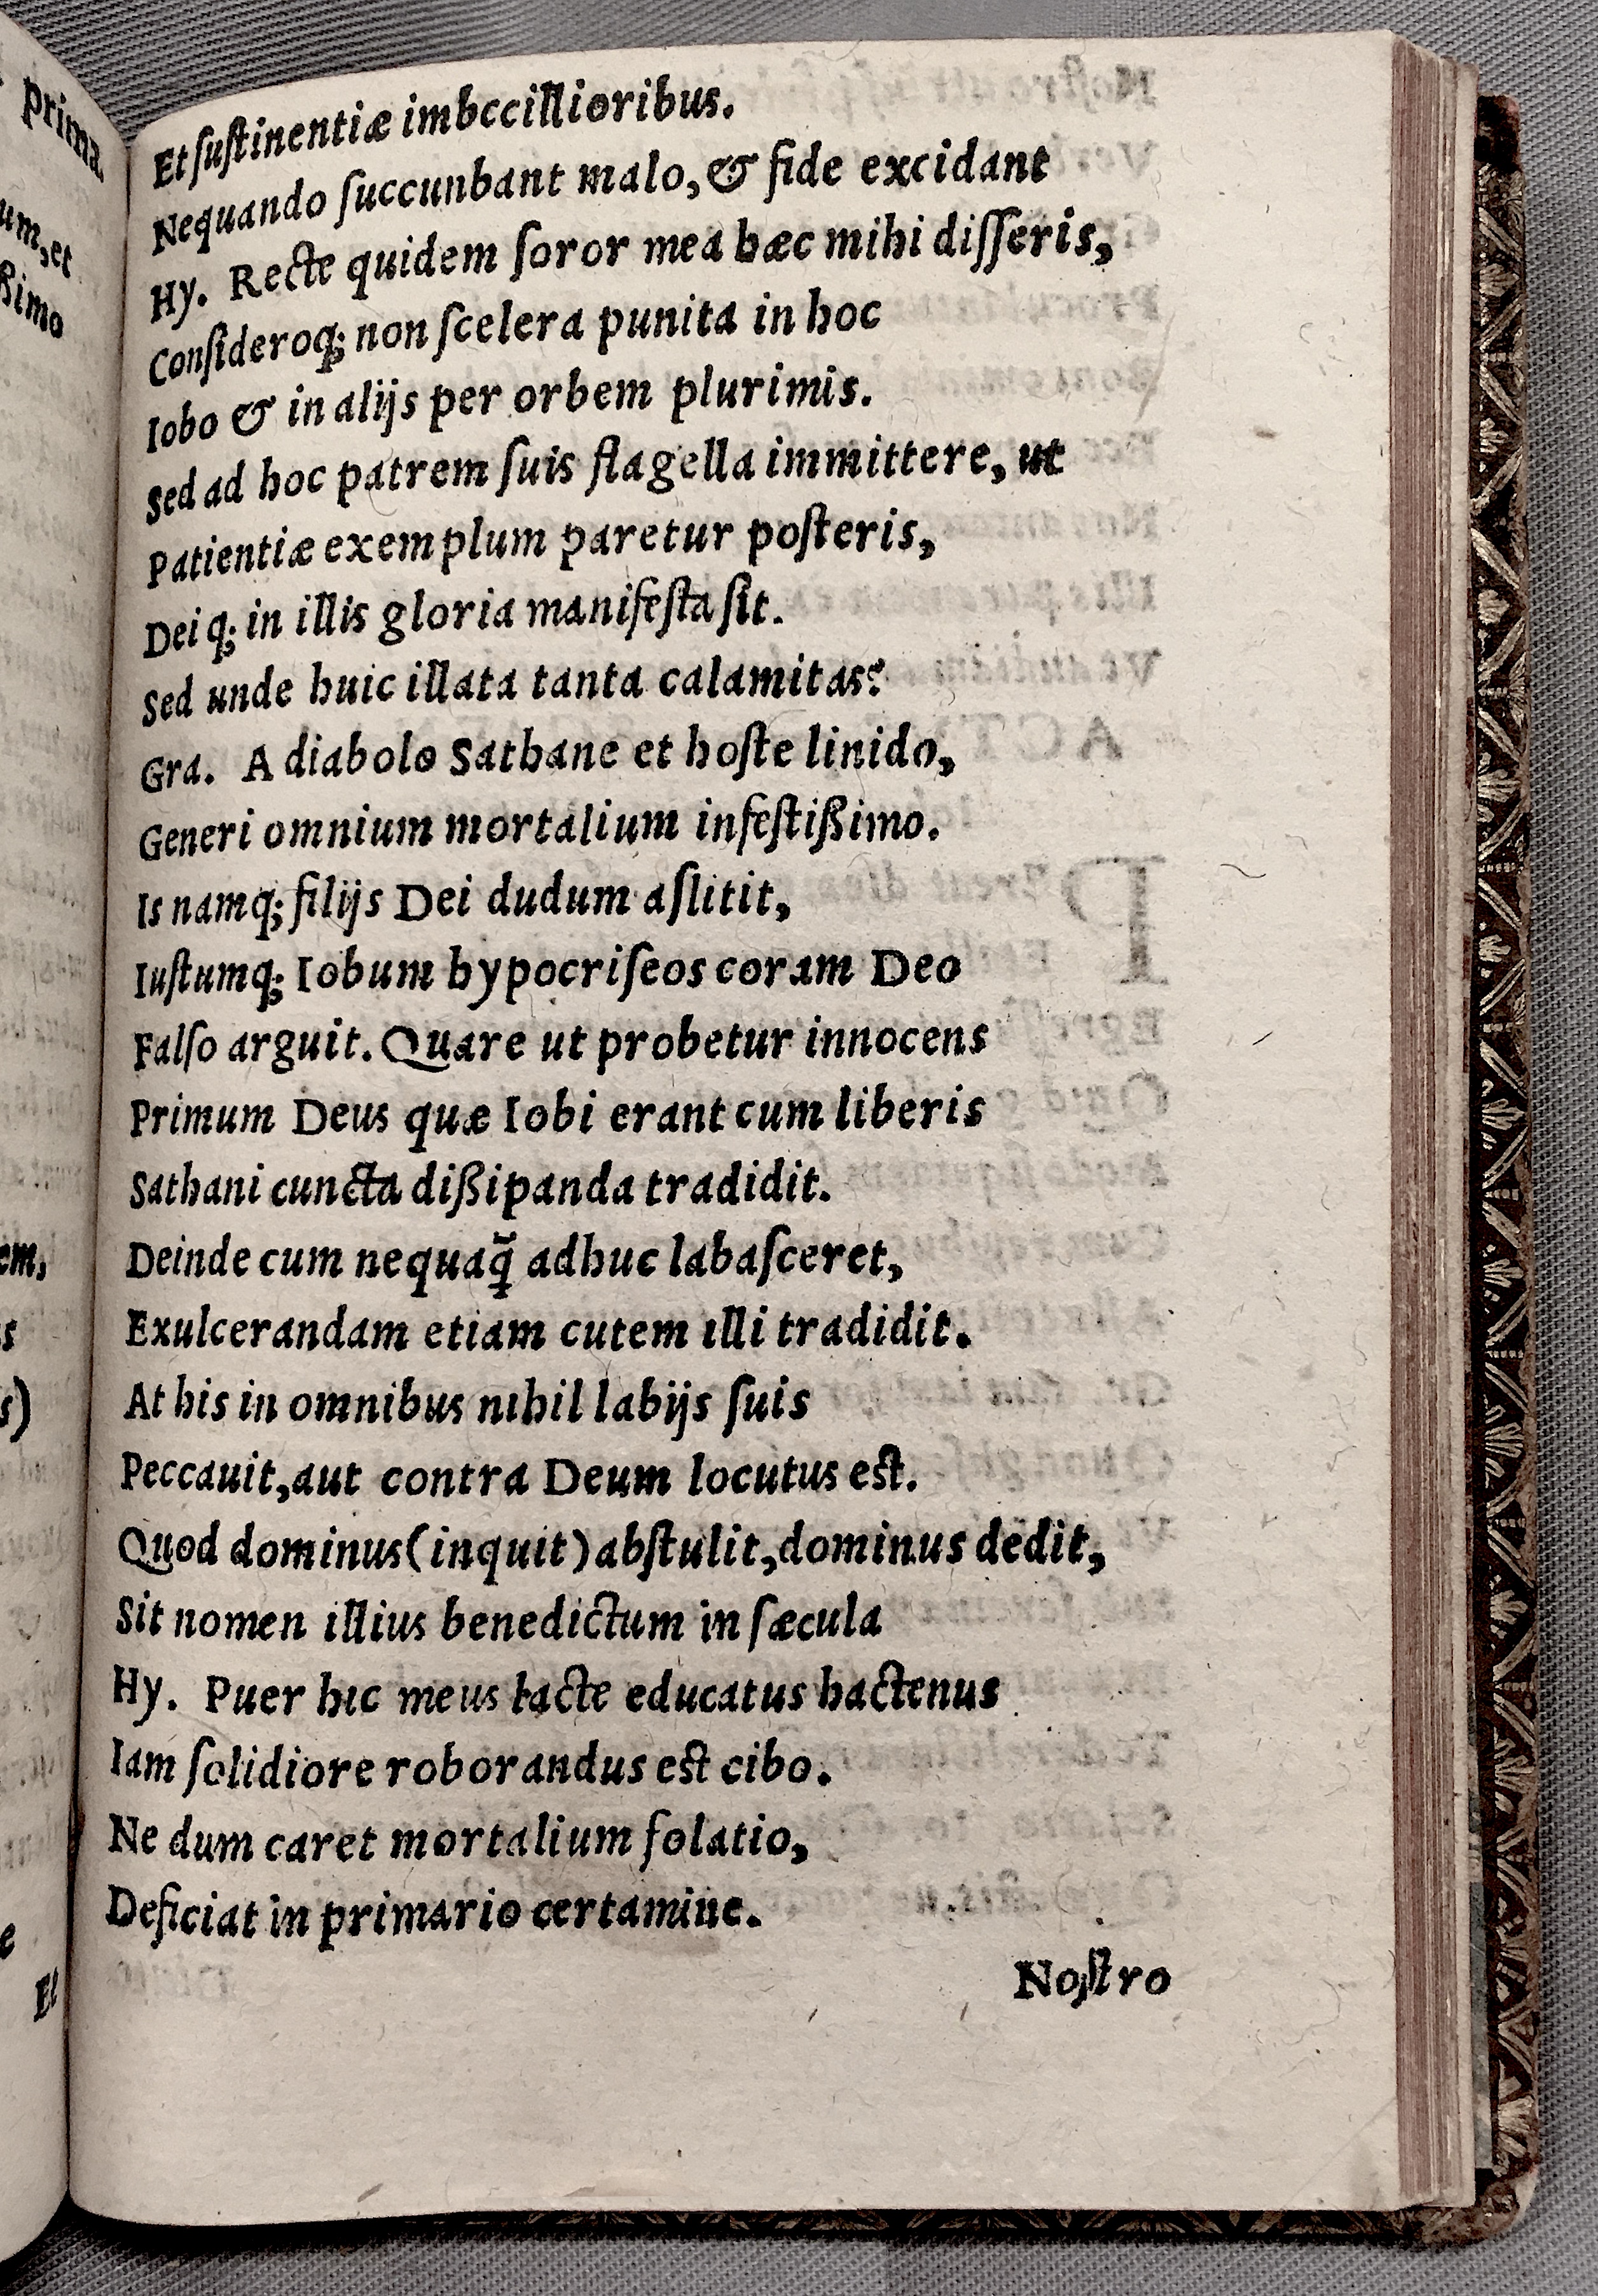 Et ſuſtinentiæ imbccillioribus.
Nequando ſuccunbant malo, & fide excidant
Hy. Recte quidem ſoror mea hæc mihi diſſeris,
Conſideroq; non ſcelera punita in hoc
Iobo & in alijs per orbem plurimis.
Sed ad hoc patrem ſuis flagella immittere, ut
Patientiæ exemplum paretur poſteris,
Dei q; in illis gloria manifeſta ſit.
Sed unde huic illata tanta calamitas?
Gra. A diabolo Sathane et hoſte linido,
Generi omnium mortalium infeſtißimo.
Is namq; filijs Dei dudum aſlitit,
Iuſtumq; Iobum hypocriſeos coram Deo
Falſo arguit. Quare ut probetur innocens
Primum Deus quæ Iobi erant cum liberis
Sathani cuncta dißipanda tradidit.
Deinde cum nequaq̃ adhuc labaſceret,
Exulcerandam etiam cutem illi tradidit.
At his in omnibus nihil labijs ſuis
Peccauit, aut contra Deum locutus eſt.
Quod dominus (inquit) abſtulit, dominus dedit,
Sit nomen illius benedictum in ſæcula
Hy. Puer hic meus lacte educatus hactenus
Iam ſolidiore roborandus eſt cibo.
Ne dum caret mortalium ſolatio,
Deficiat in primario certamine.
Noſtro